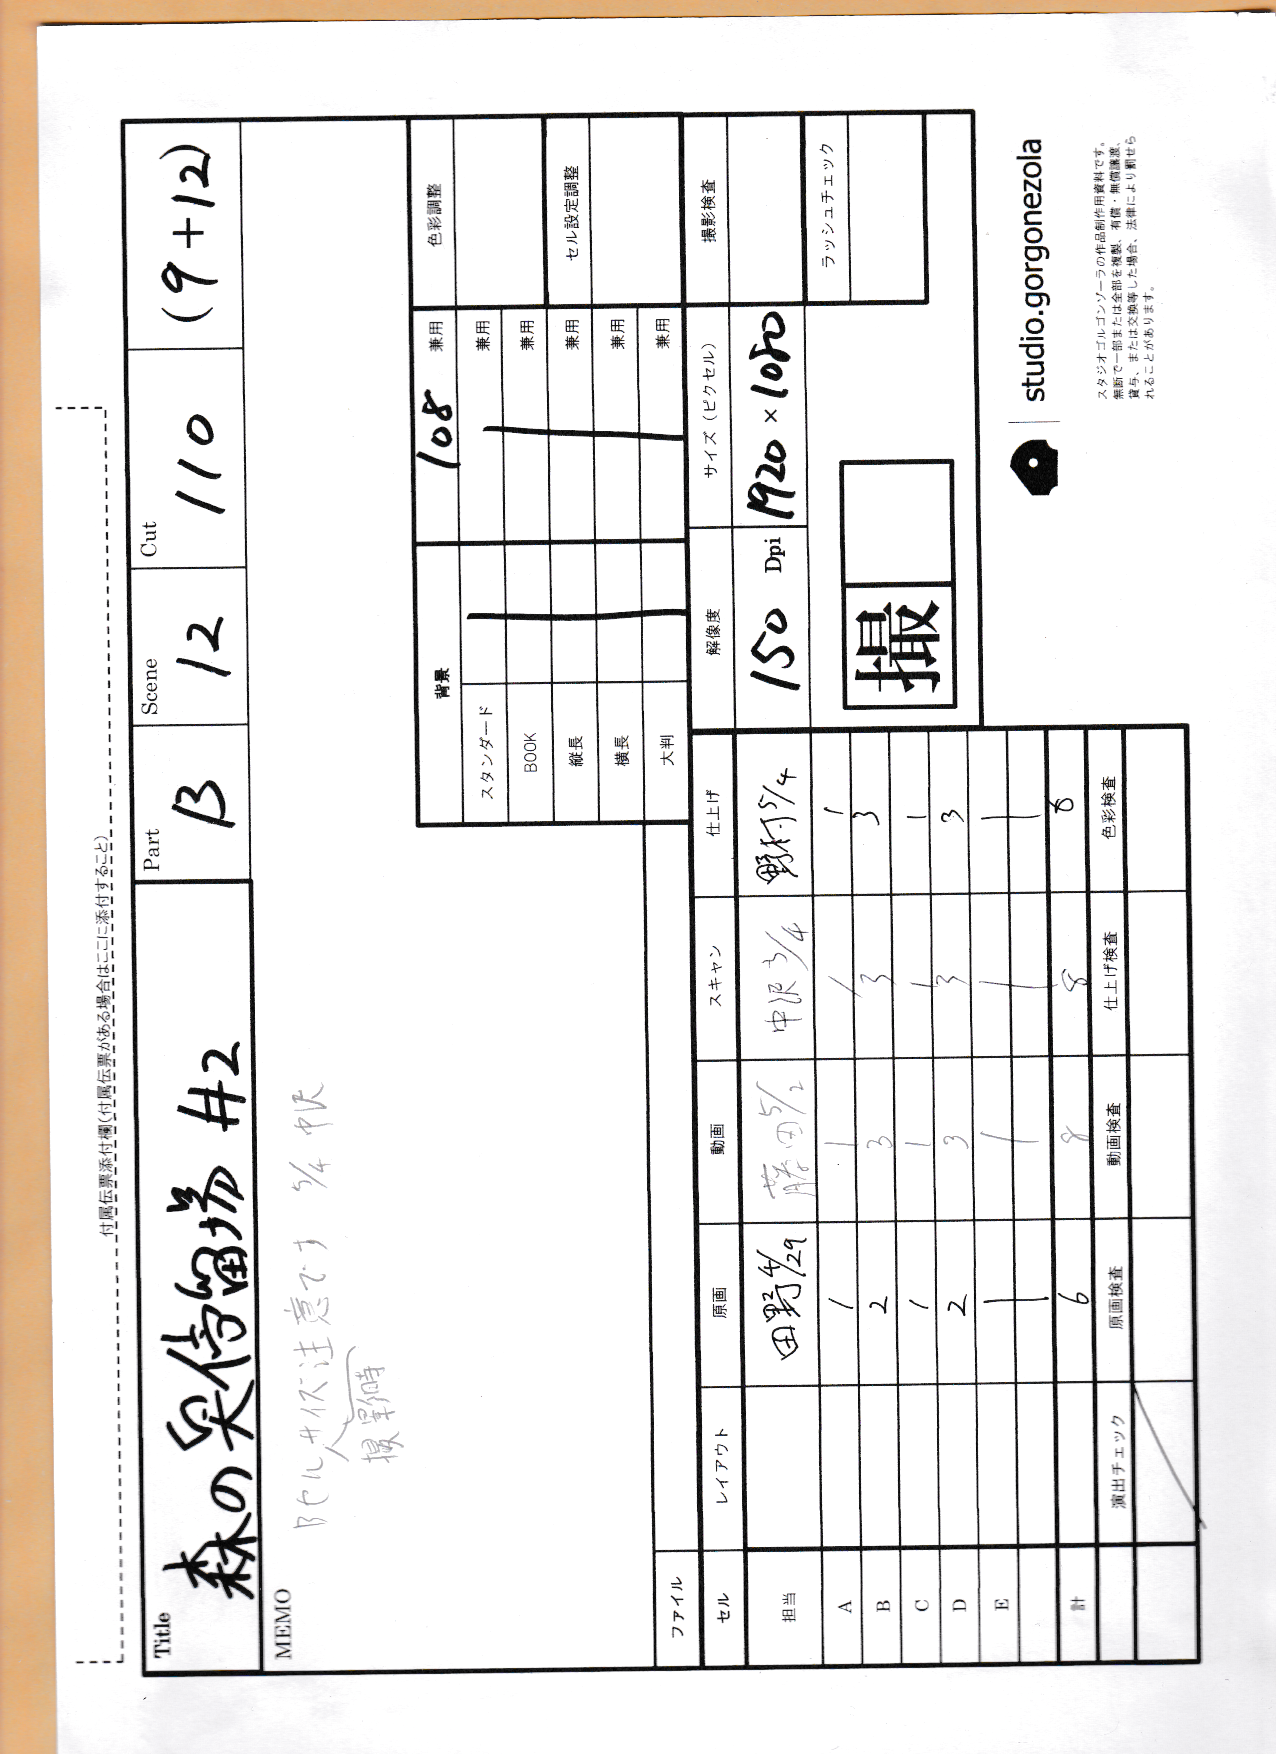 付属伝票添付欄(付属伝票がある場合はここに添付すること)
Title 森の停留場 #2
Part B
Scene 12
Cut 110
(9+12)
MEMO
Bセルサイズ注意です 5/4 中沢
撮影時
背景 108 兼用 色彩調整
スタンダード 兼用
BOOK 兼用
縦長 兼用 セル設定調整
横長 兼用
大判 兼用
ファイル
解像度 サイズ(ピクセル) 撮影検査
150 Dpi 1920×1080
ラッシュチェック
撮
セル レイアウト 原画 動画 スキャン 仕上げ
担当 田野 4/29 藤田 5/2 中沢 5/4 野村 5/4
A 1 1 1 1
B 2 3 3 3
C 1 1 1 1
D 2 3 3 3
E
計 6 8 8 8
演出チェック 原画検査 動画検査 仕上げ検査 色彩検査
studio.gorgonezola
スタジオゴルゴンゾーラの作品制作用資料です。
無断で一部または全部を複製、有償・無償譲渡、
貸与、または交換等した場合、法律により罰せら
れることがあります。